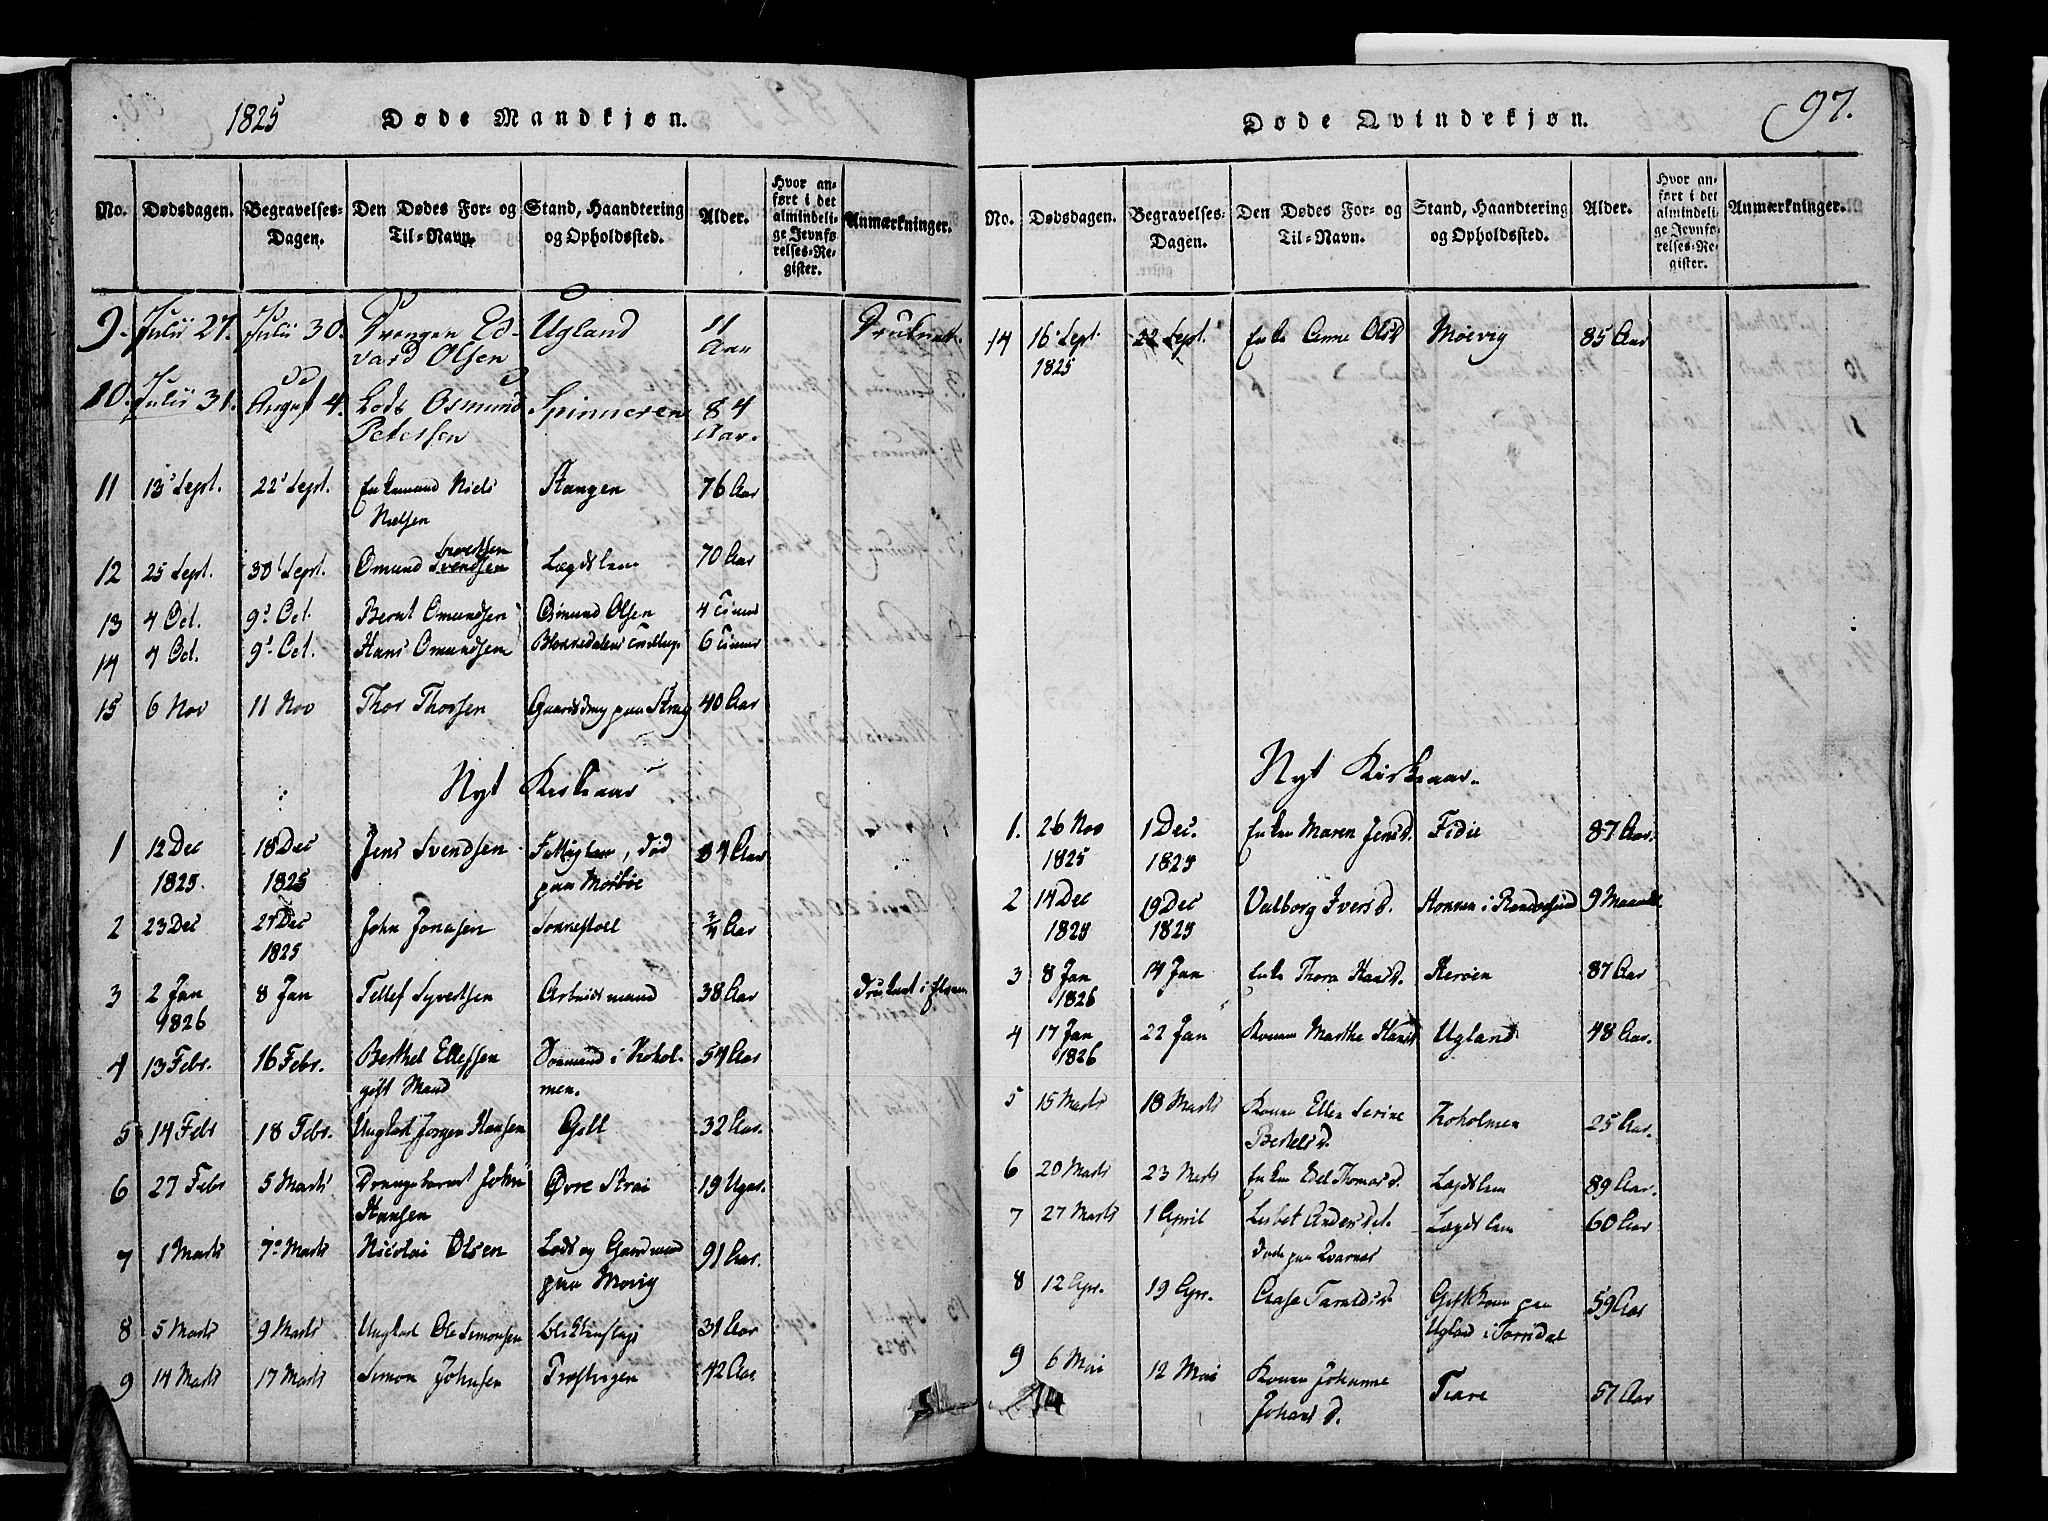 1825 Døde Mandkjøn.
No. Dødsdagen. Begravelses-Dagen. Den Dødes For- og Til-Navn. Stand, Haandtering og Opholdssted. Alder. Hvor anført i det almindelige Jevnførelses-Register. Anmærkninger.
9. Julii 27. Julii 30. Drengen Ed- Ugland 11
vard Olsen Aar
10. Julii 31. August 4. Lods Osmund Spinneren 84
Petersen Aar.
11 13 Sept. 22 Sept. Enkemand Niels Stangen 76 Aar
Nielsen
Sivertsen
12 25 Sept. 30 Sept. Omund Svendsen Lægdslem 70 Aar
13 4 Oct. 9 Oct. Bernt Omundsen Osmund Olsen 4 Timer
14 4 Oct. 9 Oct. Hans Omundsen 6 Timer
15 6 Nov 11 Nov Thor Thorsen paa Stray 40 Aar
Nyt Kirkeaar
1 12 Dec 18 Dec Jens Svendsen død Aar
1825. 1825 paa
2 23 Dec 27 Dec John Jonasen 3/4 Aar
1825
3 2 Jan 8 Jan Tellef Syvertsen Arbeidsmand 38 Aar Druknet i Elven
1826
4 13 Febr. 16 Febr. Berthel Ellefsen i Kohol- 54 Aar
gift Mand men.
5 14 Febr 18 Febr. Ungkarl Jørgen Hansen 32 Aar.
6 27 Febr 5 Marts Drengebarnet John Øvre Strai 19 Uger.
Hansen
7 1 Marts 7 Marts Nicolai Olsen Lods og Gaardmand 91 Aar.
paa Movig
8 5 Marts 9 Marts Ungkarl Ole Simonsen 31 Aar
9 14 Marts 17 Marts Simon Johnsen Præstvigen 42 Aar
Døde Qvindekjøn. 97.
No. Dødsdagen. Begravelses-Dagen. Den Dødes For- og Til-Navn. Stand, Haandtering og Opholdssted. Alder. Hvor anført i det almindelige Jevnførelses-Register. Anmærkninger.
14 16 Sept. 22 Sept. Enke Anne Olsd Moevig 85 Aar
1825
Nyt Kirkeaar.
1. 26 Nov 1 Dec. Enken Maren Jensd. Fidie 87 Aar.
1825 1825
2 14 Dec 19 Dec Valborg Iversd. i Randøsund 9 Maaneder
1825 1825
3 8 Jan 14 Jan Enke Thora Hansd. Herøen 87 Aar
1826
4 17 Jan 22 Jan Konen Marthe Hansd Ugland 48 Aar.
1826
5 15 Marts 18 Marts Konen Ellen Serine Koholmen 25 Aar.
Bertelsd.
6 20 Marts 23 Marts Enken Edel Thomasd. Lægdslem 89 Aar.
7 27 Marts 1 April Lisbet Andersdat. Lægdslem 60 Aar
Døde paa Qvarnes
8 12 Apr. 19 Apr. Aase Taraldsd. Gift Kone paa 59 Aar
Ugland i Torridal
9 6 Mai 12 Mai Konen Johanne Fiære 57 Aar
Johansd.